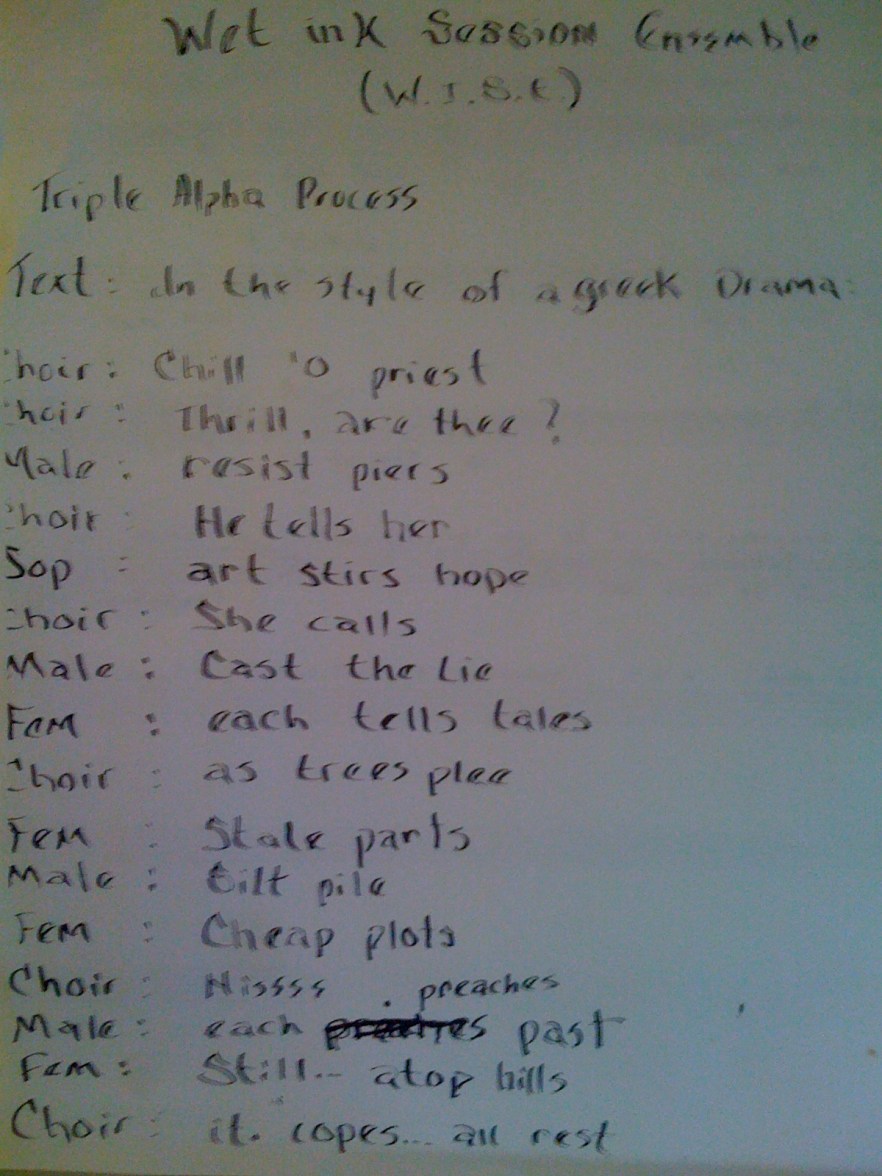 Wet ink Session Ensemble
(W.I.S.E.)
Triple Alpha Process
Text: In the style of a greek Drama:
hoir: Chill 'O priest
hoir: Thrill, are thee?
Male: resist piers
hoir: He tells her
Sop: art stirs hope
Choir: She calls
Male: Cast the Lie
Fem: each tells tales
Choir: as trees plee
Fem: Stale parts
Male: tilt pile
Fem: Cheap plots
Choir: Hissss . preaches
Male: each past
Fem: Still... atop hills
Choir: it. copes... all rest